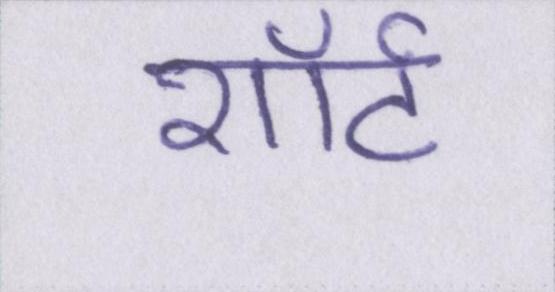 शॉर्ट